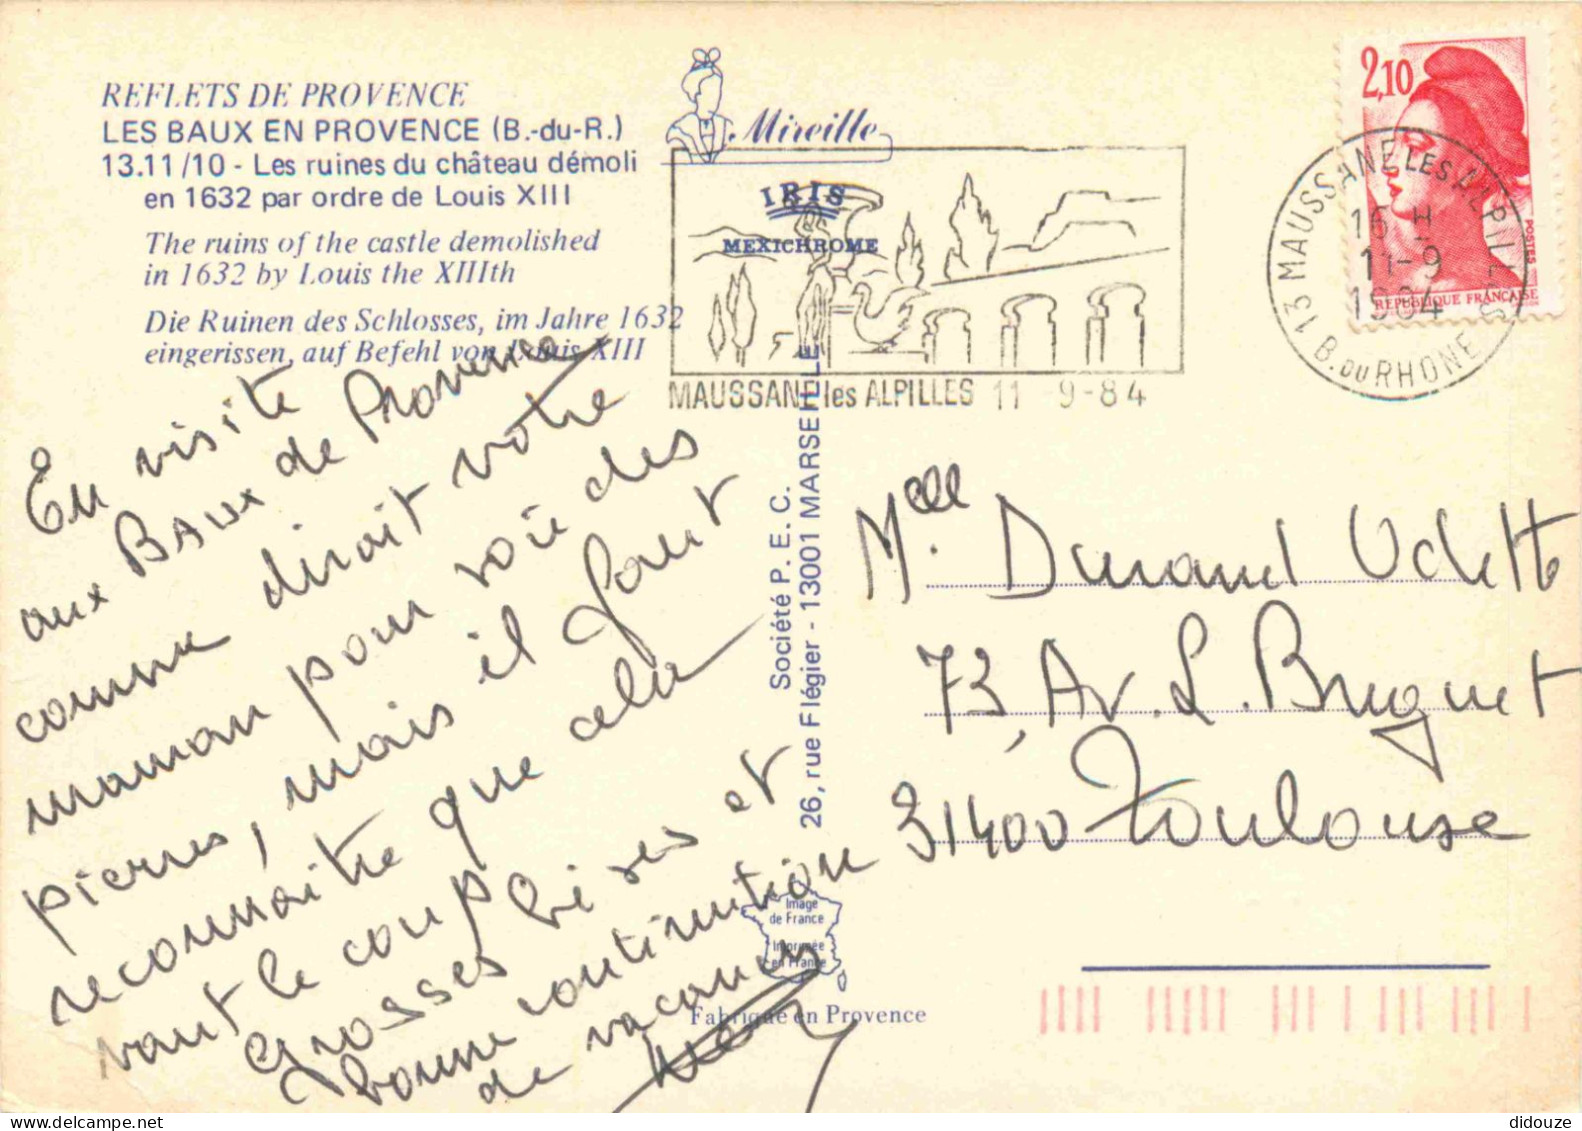 REFLETS DE PROVENCE
LES BAUX EN PROVENCE (B.-du-R.)
13.11/10 - Les ruines du château démoli
en 1632 par ordre de Louis XIII
The ruins of the castle demolished
in 1632 by Louis the XIIIth
Die Ruinen des Schlosses, im Jahre 1632
eingerissen, auf Befehl von Louis XIII
Mireille
IRIS
MEXICHROME
MAUSSANE les ALPILLES 11 9-84
2,10
POSTES
REPUBLIQUE FRANÇAISE
13 MAUSSANE LES ALPILLES
16 H
11-9
1984
B. DU RHONE
En visite
aux BAUX de Provence
comme dirait votre
maman pour voir des
pierres, mais il faut
reconnaitre que cela
vaut le coup
Grosses bises et
bonne continuation
de vacances
Société P. E. C.
26, rue Flégier - 13001 MARSEILLE
Melle Durand Odette
73, Av. L. Bruguet
31400 Toulouse
Image
de France
Imprimée
en France
Fabriqué en Provence
didouze